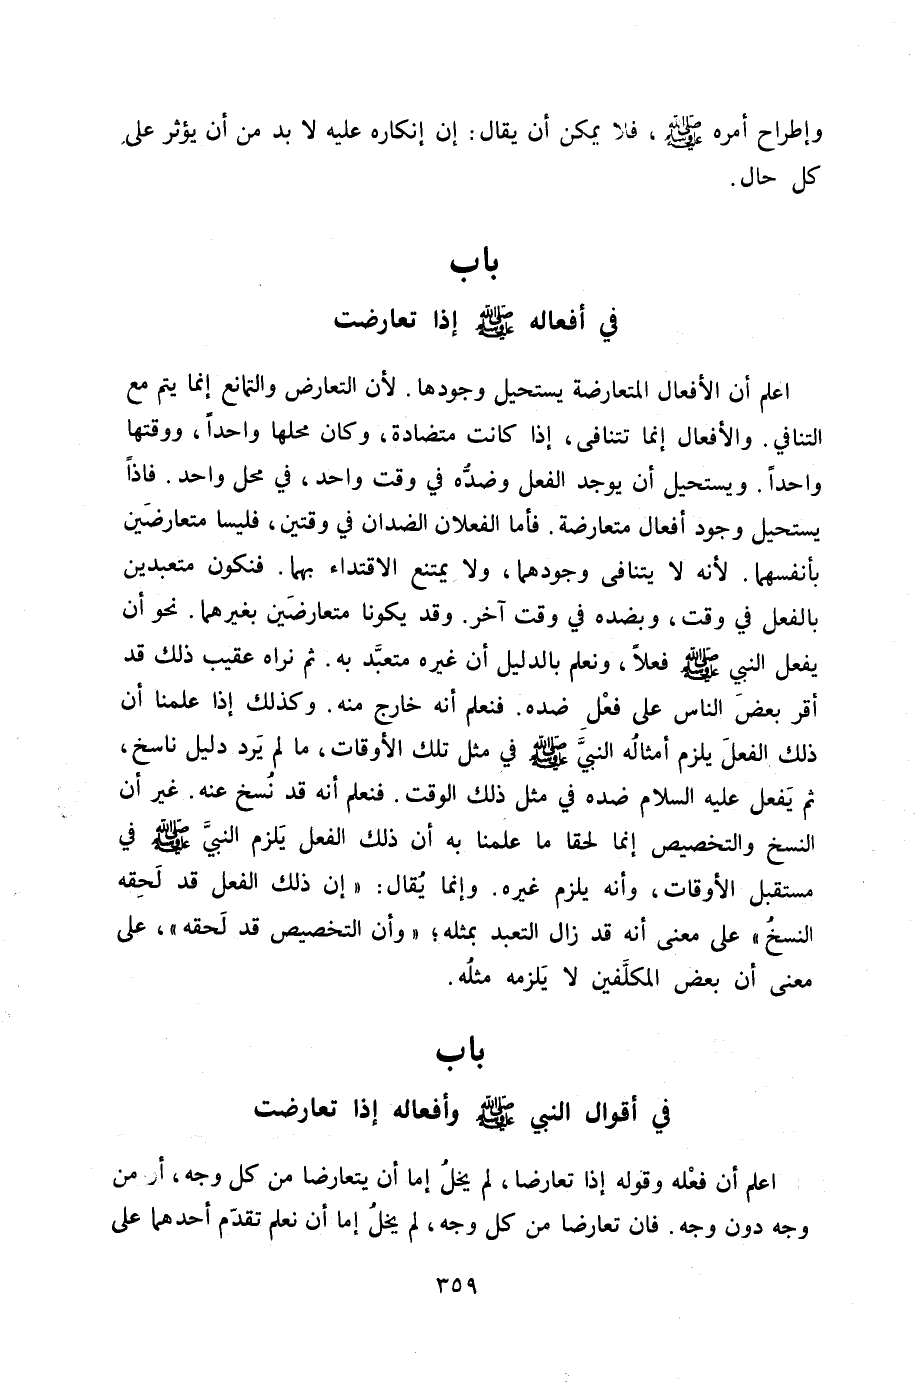 وإطراح أمره ﷺ ، فلا يمكن أن يقال: إن إنكاره عليه لا بد من أن يؤثر على
كل حال.
باب
في أفعاله ﷺ إذا تعارضت
اعلم أن الأفعال المتعارضة يستحيل وجودها. لأن التعارض والتمانع إنما يتم مع
التنافي. والأفعال إنما تتنافى، إذا كانت متضادة، وكان محلها واحداً، ووقتها
واحداً. ويستحيل أن يوجد الفعل وضدُّه في وقت واحد، في محل واحد. فاذاً
يستحيل وجود أفعال متعارضة. فأما الفعلان الضدان في وقتين، فليسا متعارضَين
بأنفسهما. لأنه لا يتنافى وجودهما، ولا يمتنع الاقتداء بهما. فنكون متعبدين
بالفعل في وقت، وبضده في وقت آخر. وقد يكونا متعارضَين بغيرهما. نحو أن
يفعل النبي ﷺ فعلاً، ونعلم بالدليل أن غيره متعبَّد به. ثم نراه عقيب ذلك قد
أقر بعضَ الناس على فعْلِ ضده. فنعلم أنه خارج منه. وكذلك إذا علمنا أن
ذلك الفعلَ يلزم أمثالُه النبيَّ ﷺ في مثل تلك الأوقات، ما لم يَرد دليل ناسخ،
ثم يَفعل عليه السلام ضده في مثل ذلك الوقت. فنعلم أنه قد نُسخ عنه. غير أن
النسخ والتخصيص إنما لحقا ما علمنا به أن ذلك الفعل يَلزم النبيَّ ﷺ في
مستقبل الأوقات، وأنه يلزم غيره. وإنما يُقال: «إن ذلك الفعل قد لَحِقه
النسخُ» على معنى أنه قد زال التعبد بمثله؛ «وأن التخصيص قد لَحقه»، على
معنى أن بعض المكلَّفين لا يَلزمه مثلُه.
باب
في أقوال النبي ﷺ وأفعاله إذا تعارضت
اعلم أن فعْله وقوله إذا تعارضا، لم يخلُ إما أن يتعارضا من كل وجه، أو من
وجه دون وجه. فان تعارضا من كل وجه، لم يخلُ إما أن نعلم تقدّم أحدهما على
٣٥٩